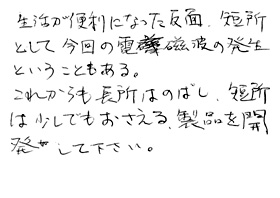 生活が便利になった反面、短所
として今回の電磁波の発生
ということもある。
これからも長所はのばし、短所
は少しでもおさえる、製品を開
発して下さい。